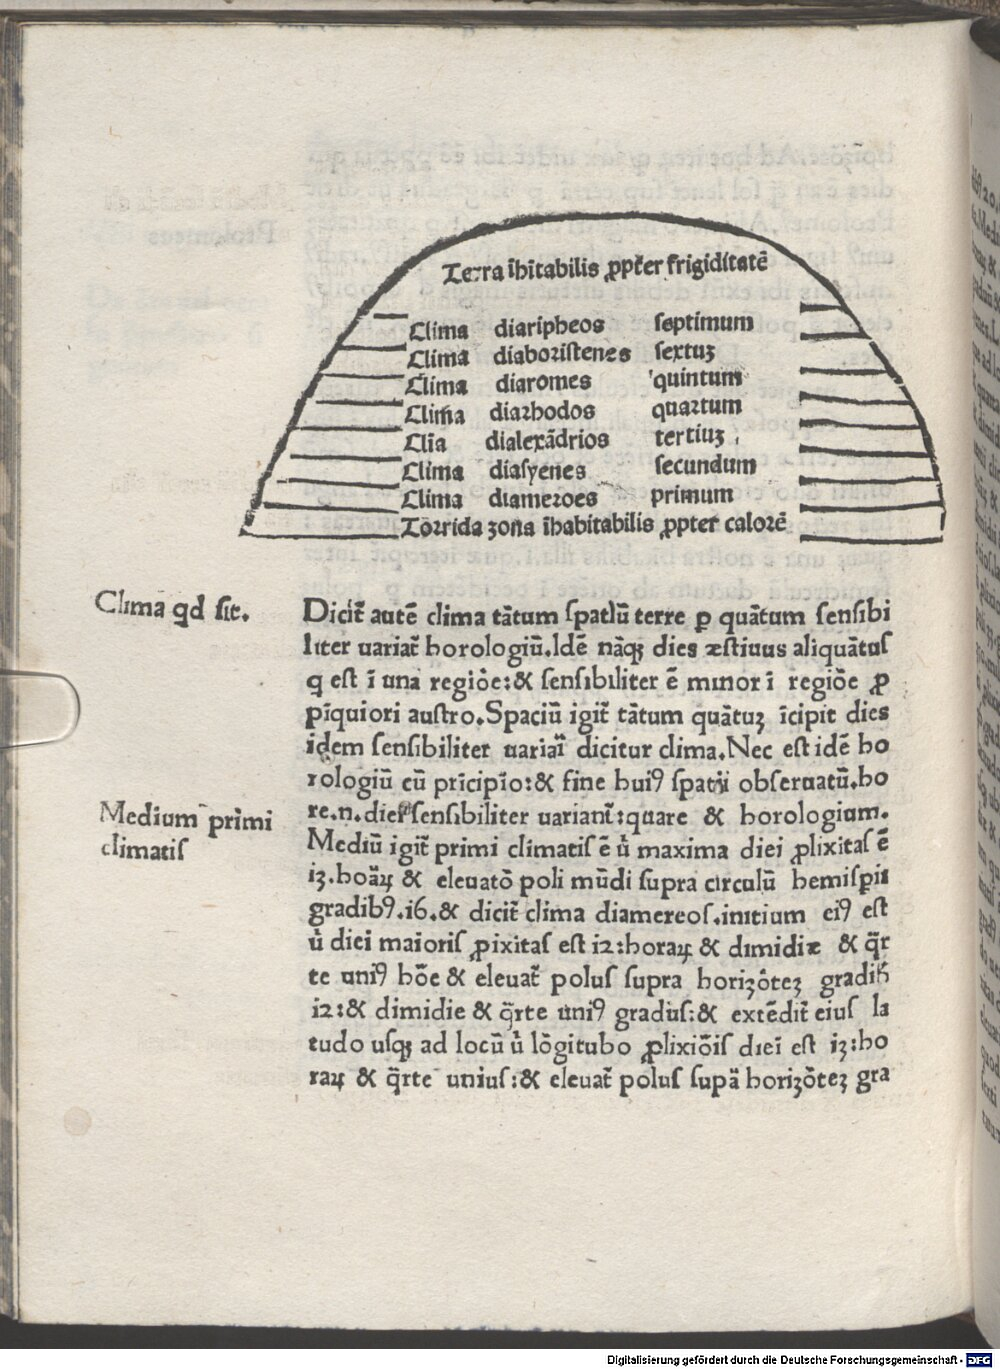 Terra ihitabilis ꝓpt̄er frigiditatē
Clima diaripheos septimum
Clima diaboristenes sextuꝫ
Clima diaromes quintum
Clima diarhodos quartum
Cliā dialexādrios tertiuꝫ
Clima diasyenes secundum
Clima diameroes primum
Torrida zona īhabitabilis ꝓpter calorē
Clima qd ſit.
Dicit̄ autē clima tātum ſpatiū terre ꝑ quātum ſenſibi
liter uariat̄ horologiū. Idē nāqꝫ dies æſtiuus aliquātuſ
q eſt ī una regiōe: & ſenſibiliter ē minor ī regiōe ꝓ
pīquiori auſtro. Spaciū igit̄ tātum quātuꝫ īcipit dies
idem ſenſibiliter uariaī dicitur clima. Nec eſt idē ho
rologiū cū prīcipīo: & fine huiꝰ ſpatii obſeruatū. ho
re.n. dieꝝ ſenſibiliter uariant̄: quare & horologium.
Medium primi
climatiſ
Mediū igit̄ primi climatiſ ē ủ maxima diei ꝓlixitaſ ē
iꝫ. hoāꝝ & eleuatō poli mūdi ſupra circulū hemiſꝑii
gradibꝰ. i6. & dicit̄ clima diamereoſ. initium eiꝰ eſt
ủ diei maioriſ ꝓixitaſ eſt i2: horaꝝ & dimidiæ & q̄r
te uniꝰ hōe & eleuat̄ poluſ ſupra horizōteꝫ gradiƀ
i2: & dimidie & q̄rte uniꝰ graduſ: & extēdit̄ eiuſ la
tudo uſqꝫ ad locū ủ lōgitubo ꝓlixiōiſ dieī eſt iꝫ: ho
raꝝ & q̄rte uniuſ: & eleuat̄ poluſ ſupā horizōteꝫ gra
Digitalisierung gefördert durch die Deutsche Forschungsgemeinschaft - DFG